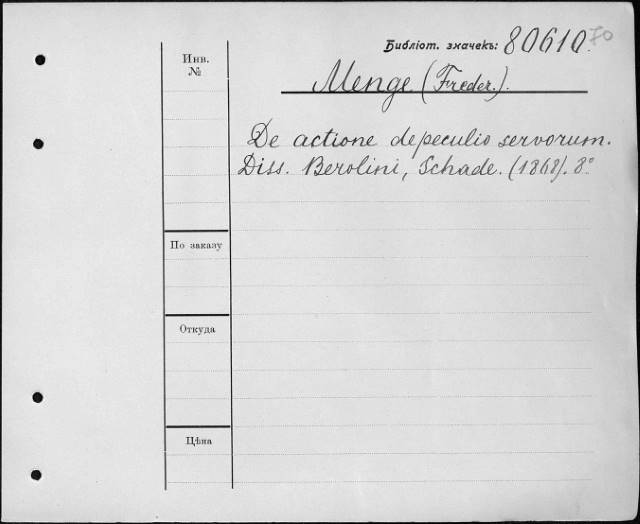 Библіот. значекъ: 80610. 70
Инв. №
Menge (Freder.).
De actione de peculio servorum.
Diss. Berolini, Schade. (1868). 8°
По заказу
Откуда
Цѣна